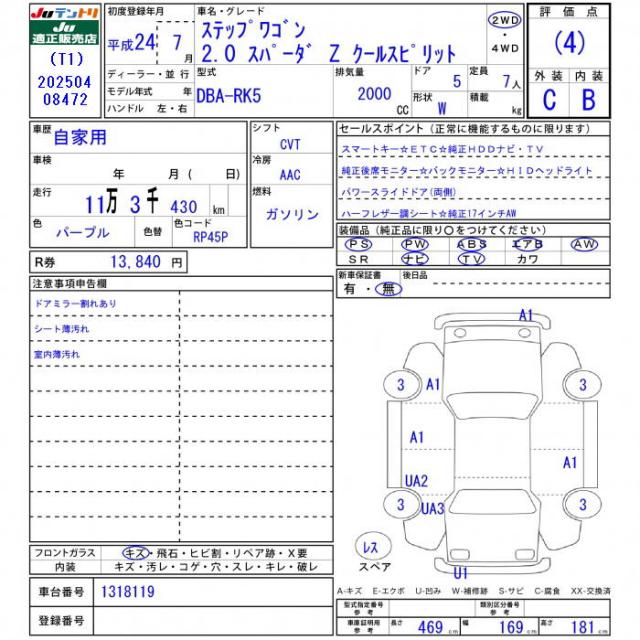 JUテントリ
JU
適正販売店
(T1)
202504
08472
初度登録年月
平成24 年 7 月
ディーラー・並 行
モデル年式 年
ハンドル 左・右
車名・グレード
ステップワゴン
2.0 スパーダ Z クールスピリット
2WD
・
4WD
型式
DBA-RK5
排気量
2000 CC
ドア 5
形状 W
定員 7人
積載 kg
評価点
(4)
外装 内装
C B
車歴
自家用
車検
年 月 ( 日)
走行
11万 3千 430 km
色
パープル
色替
色コード
RP45P
シフト
CVT
冷房
AAC
燃料
ガソリン
R券 13,840 円
セールスポイント (正常に機能するものに限ります)
スマートキー☆ETC☆純正HDDナビ・TV
純正後席モニター☆バックモニター☆HIDヘッドライト
パワースライドドア(両側)
ハーフレザー調シート☆純正17インチAW
装備品 (純正品に限り〇をつけてください)
PS PW ABS エアB AW
SR ナビ TV カワ
新車保証書
有・無
後日品
注意事項申告欄
ドアミラー割れあり
シート薄汚れ
室内薄汚れ
A1
3 A1 3
A1
A1
UA2
3 UA3 3
レス
スペア
U1
フロントガラス キズ・飛石・ヒビ割・リペア跡・X要
内装 キズ・汚レ・コゲ・穴・スレ・キレ・破レ
車台番号 1318119
登録番号
A-キズ E-エクボ U-凹み W-補修跡 S-サビ C-腐食 XX-交換済
型式指定番号
参考
類別区分番号
参考
車庫証明用
参考
長さ 469 cm 幅 169 cm 高さ 181 cm